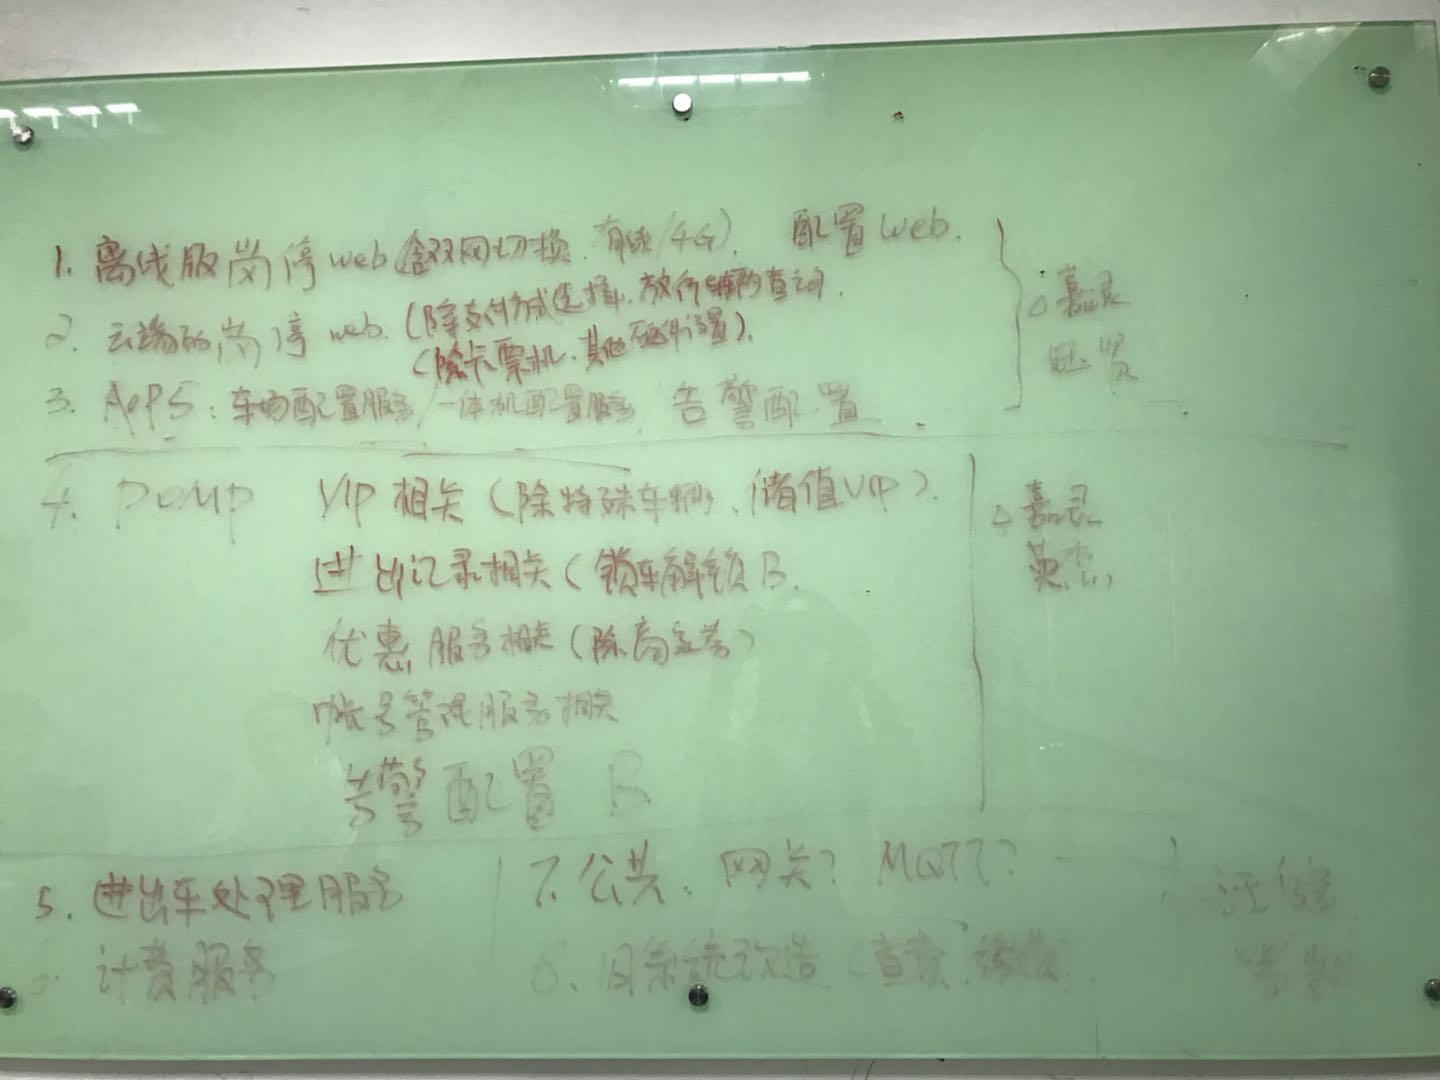 1. 离线版岗停web(含双网切换.有线/4G). 配置web.
(除支付方式选择.放行车辆查询.
2. 云端的岗停web.
(除卡票机、其他硬件设置).
3. APPS:车场配置服务/一体机配置服务 告警配置
△嘉灵
4. POMP VIP相关(除特殊车辆、储值VIP).
进出记录相关(锁车解锁B.
优惠服务相关(除商家券)
帐号管理服务相关
告警配置 B
△嘉灵
英杰
5. 进出车处理服务
计费服务
7. 公共:网关? MQTT?
8、旧系统改造(查费、缴费)